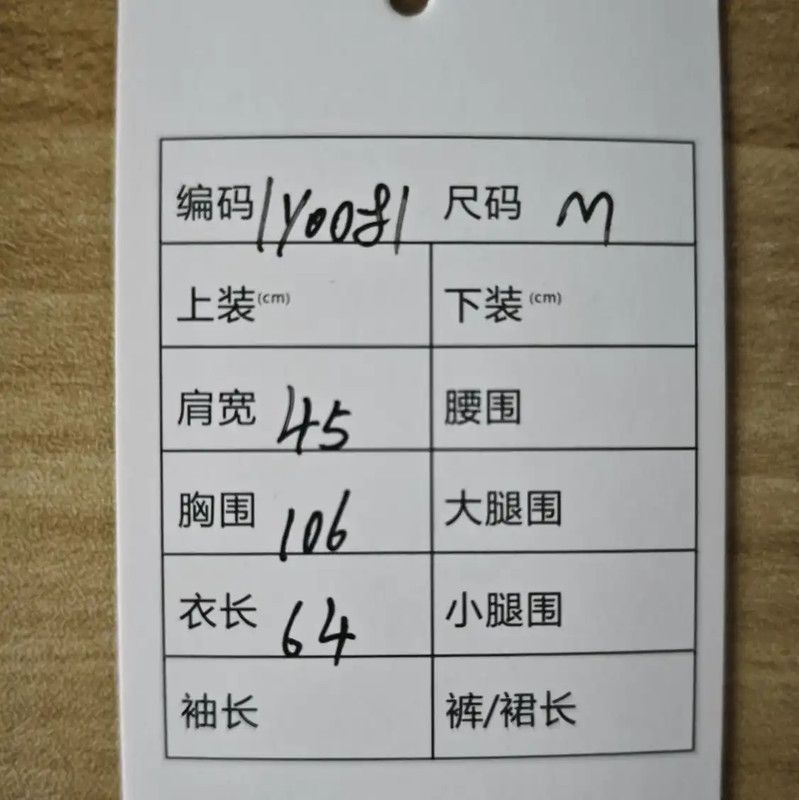 编码 1Y0081 尺码 M
上装(cm) 下装(cm)
肩宽 45 腰围
胸围 106 大腿围
衣长 64 小腿围
袖长 裤/裙长